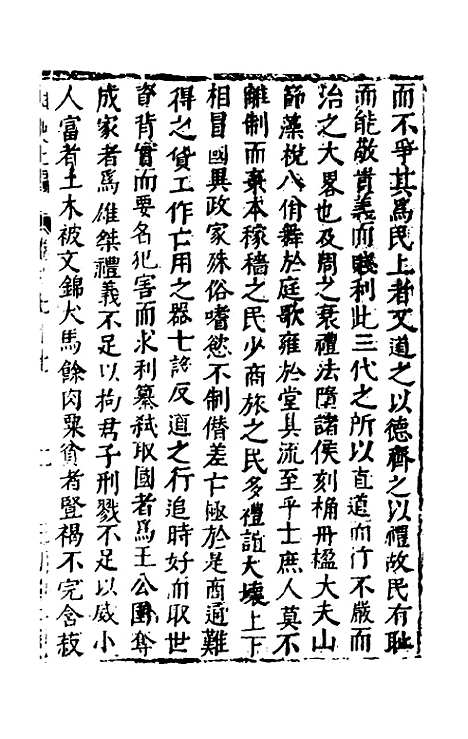 而不爭其爲民上者又道之以德齊之以禮故民有耻
而能敬貴義而賤利此三代之所以直道而行不嚴而
治之大畧也及周之衰禮法隳諸侯刻桷丹楹大夫山
節藻梲八佾舞於庭歌雍於堂其流至乎士庶人莫不
離制而棄本稼穡之民少商旅之民多禮誼大壞上下
相冒國異政家殊俗嗜慾不制僭差亡極於是商通難
得之貨工作亡用之器士設反道之行追時好而取世
資背實而要名犯害而求利簒弑取國者爲王公圉奪
成家者爲雄桀禮義不足以拘君子刑戮不足以威小
人富者土木被文錦犬馬餘肉粟貧者豎褐不完含菽